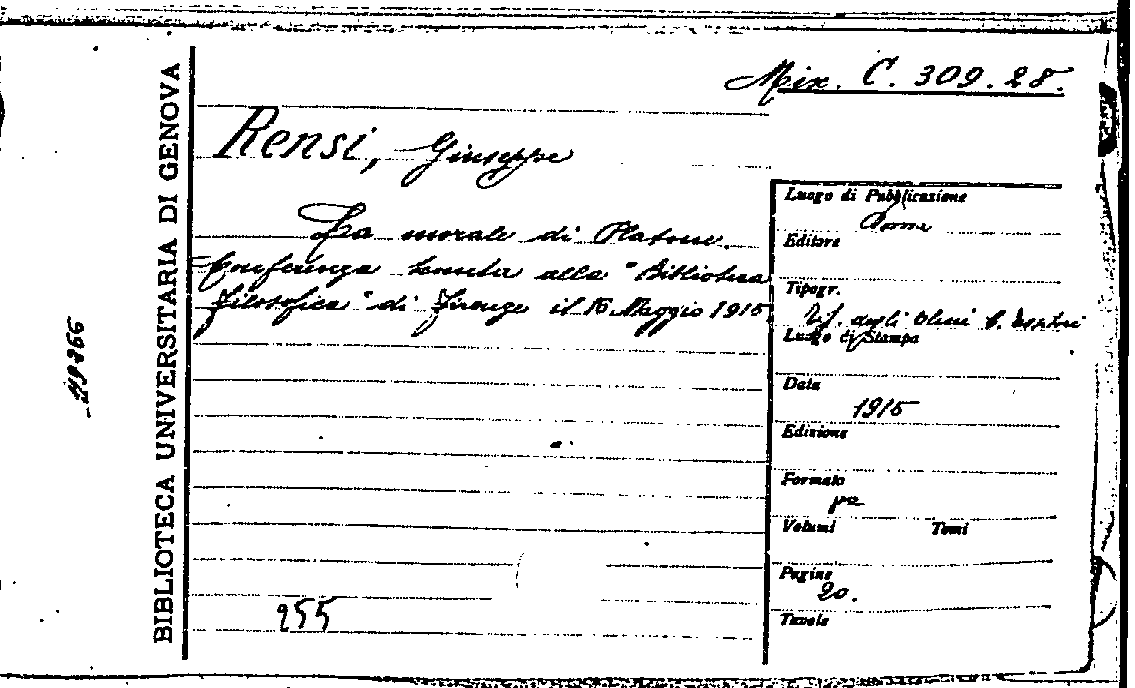 Mix. C. 309.28.
Rensi, Giuseppe
La morale di Platone.
Conferenza tenuta alla "Biblioteca
filosofica" di Firenze il 15 Maggio 1915
255
BIBLIOTECA UNIVERSITARIA DI GENOVA
Luogo di Pubblicazione
Roma
Editore
Tipogr.
degli Olmi C.
Luogo di Stampa
Data
1915
Edizione
Formato
Volumi Tomi
Pagine
20.
Tavole